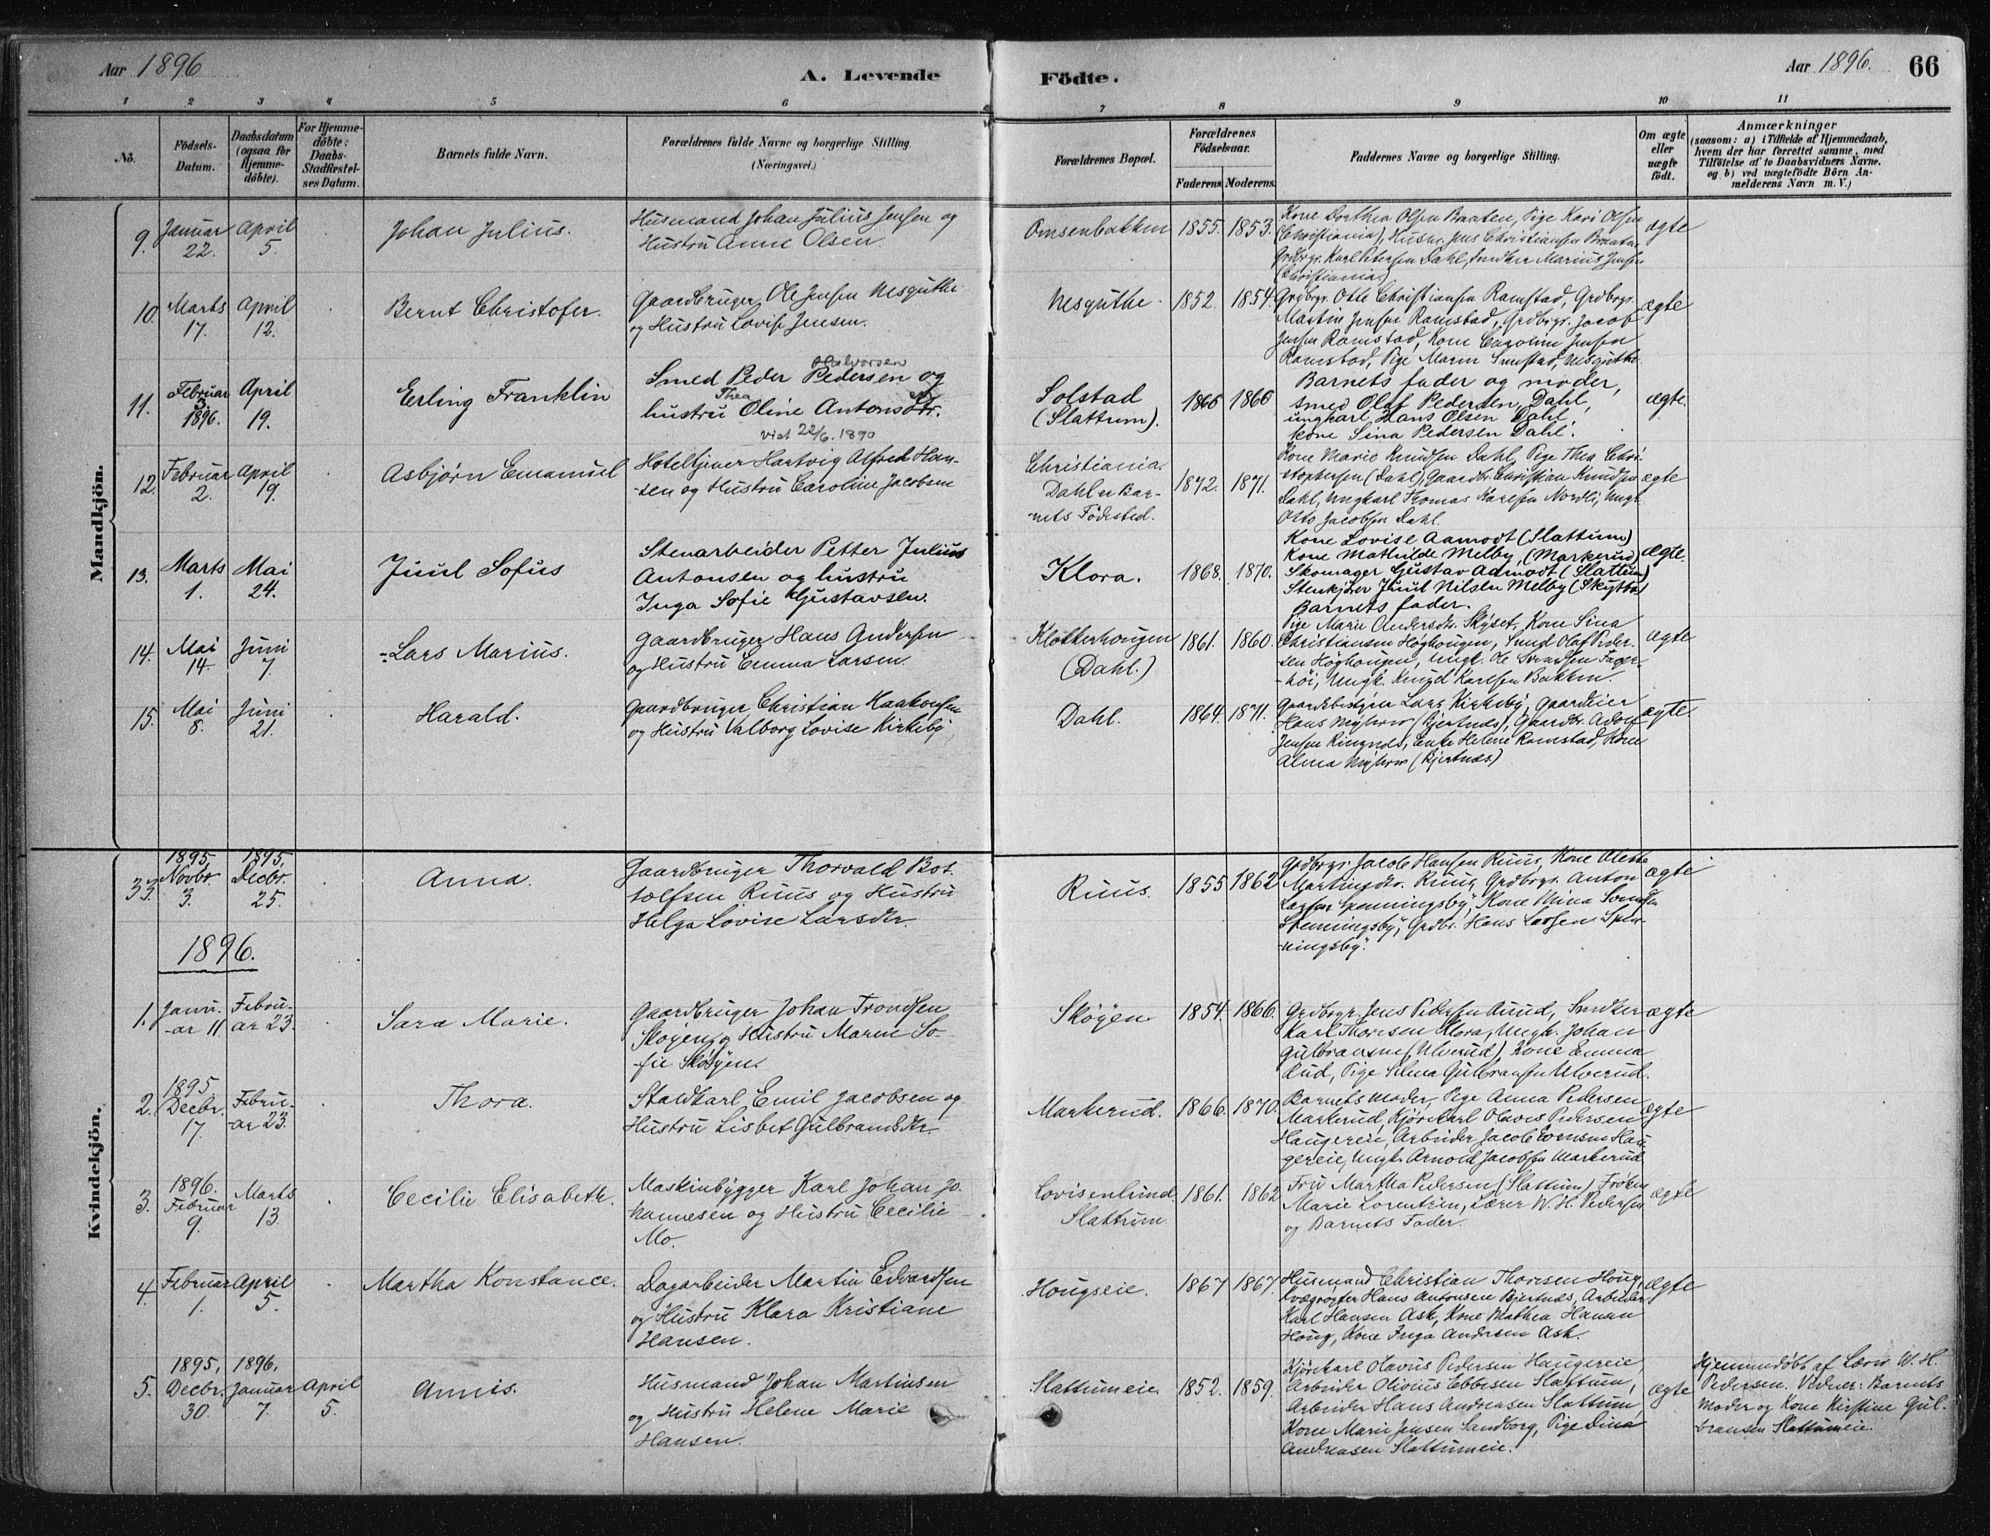 Aar 1896
A. Levende
Födte.
Aar 1896.
66
1 2 3 4 5 6 7 8 9 10 11
No.
Födsels-
Datum.
Daabsdatum
(ogsaa for
Hjemme-
döbte).
For Hjemme-
döbte:
Daabs-
Stadfæstel-
ses Datum.
Barnets fulde Navn.
Forældrenes fulde Navne og borgerlige Stilling.
(Næringsvei.)
Forældrenes Bopæl.
Forældrenes
Födselsaar.
Faderens. Moderens.
Faddernes Navne og borgerlige Stilling.
Om ægte
eller
uægte
födt.
Anmærkninger
(saasom: a) i Tilfælde af Hjemmedaab,
hvem der har forrettet samme, med
Tilföielse af to Daabsvidners Navne,
og b) ved uægtefödte Börn An-
melderens Navn m. V.)
Mandkjön.
9. Januar 22. April 5. Johan Julius.
Husmand Johan Julius Jensen og
Hustru Anne Olsen.
Omsenbakken 1855. 1853.
Kone Dorthea Olsen Braaten, Pige Kari Olsen
(Christiania), Husm. Jens Christiansen Braaten
Grdbrgr. Karl Petersen Dahl, Snedker Marius Jensen
(Christiania)
ægte
10. Marts 17. April 12. Bernt Christofer.
Gaardbruger Ole Jensen Nesguthe
og Hustru Lovise Jensen.
Nesguthe. 1852. 1854.
Grdbrgr. Otto Christiansen Ramstad, Grdbrgr.
Martin Jensen Ramstad, Grdbrgr. Jacob
Jensen Ramstad, Kone Caroline Jensen
Ramstad, Pige Maren Smestad, Nesguthe
ægte
11. Februar 3. 1896. April 19. Erling Franklin
Halvorsen
Smed Peder Pedersen og
Thea
hustru Oline Antonsdr.
viet 22/6. 1890
Solstad
(Slattum).
1866 1866
Barnets fader og moder,
smed Olaf Pedersen Dahl,
ungkarl Hans Olsen Dahl,
kone Sina Pedersen Dahl.
ægte.
12. Februar 2. April 19. Asbjörn Emanuel
Hoteltjener Hartvig Alfred Han-
sen og Hustru Caroline Jacobsen
Christiania
Dahl er Bar-
nets Födested.
1872. 1871.
Kone Marie Knudsen Dahl, Pige Thea Chri-
stophersen (Dahl), Gaardbr. Christian Knudsen
Dahl, Ungkarl Thomas Karlsen Nordli, Ungk.
Otto Jacobsen Dahl.
ægte
13. Marts 1. Mai 24. Juul Sofus
Stenarbeider Petter Julius
Antonsen og hustru
Inga Sofie Gustavsen.
Klora. 1868. 1870.
Kone Lovise Aamodt (Slattum)
Kone Mathilde Melby, (Markerud)
Skomager Gustav Aamodt (Slattum)
Stenkjörer Juul Nilsen Melby (Skytta)
Barnets fader.
ægte.
14. Mai 14. Juni 7. Lars Marius.
Gaardbruger Hans Andersen
og Hustru Emma Larsen.
Klokkerhougen
(Dahl.)
1861. 1860.
Pige Marie Andersdr. Skyset, Kone Sina
Christiansen Höghougen, Smed Olaf Peder-
sen Höghougen, Ungk. Ole Fager-
höi, Ungk. Knud Karlsen Bakken.
ægte
15. Mai 8. Juni 21. Harald.
Gaardbruger Christian Haakonsen
og Hustru Valborg Lovise Kirkeby
Dahl. 1864. 1871.
Gaardbestyrer Lars Kirkeby, Gaardeier
Hans Myhrer (Kjertnæs), Gaardbr. Adolf
Jensen Ringnæs, Enke Helene Ramstad, Kone
Alma Myhrer (Kjertnæs)
ægte
Kvindekjön.
33. 1895 Novbr. 3. 1895. Decbr. 25. Anna.
Gaardbruger Thorvald Bot-
tolfsen Ruus og Hustru
Helga Lovise Larsdtr.
Ruus. 1855 1862
Grdbrgr. Jacob Hansen Ruus, Kone Olette
Martinsdtr. Ruus, Grdbrgr. Anton
Larsen Spenningsby, Kone Mina
Spenningsby, Grdbr. Hans Larsen Spen-
ningsby.
ægte
1896.
1. Janu-
ar 11 Febru-
ar 23. Sara Marie.
Gaardbruger Johan Trondsen
Skøyen og Hustru Maren So-
fie Skøyen.
Skøyen. 1854. 1866.
Grdbrgr. Jens Pedersen Aurud, Snedker
Karl Thoresen Klora, Ungk. Johan
Gulbransen (Ulverud), Kone Emma
Rud, Pige Selma Gulbransen Ulverud.
ægte
2. 1895 Decbr. 17 Febru-
ar 23. Thora.
Staldkarl Emil Jacobsen og
Hustru Lisbet Gulbrandsdtr.
Markerud. 1866. 1870.
Barnets Moder, Pige Anna Pedersen
Markerud, Kjørekarl Olavus Pedersen
Haugereie, Arbeider Jacob Evensen Hau-
gereie, Ungk. Arnold Jacobsen Markerud
ægte
3. 1896. Februar 9. Marts 13. Cecilie Elisabeth.
Maskinbygger Karl Johan Jo-
hannesen og Hustru Cecilie
Mo.
Lovisenlund
Slattum.
1861. 1862
Fru Martha Pedersen (Slattum) Frøken
Marie Lorentzen, Lærer W. H. Pedersen
og Barnets Fader.
ægte
4. Februar 1. April 5. Martha Konstance.
Dagarbeider Martin Edvardsen
og Hustru Klara Kristiane
Hansen.
Hougseie. 1867 1867.
Husmand Christian Thoresen Houg,
Kvægrøgter Hans Antonsen Bjertnæs, Arbeider
Karl Hansen Ask, Kone Mathea Hansen
Houg, Kone Inga Andersen Ask.
ægte
5. 1895. Decbr. 30. 1896. Januar 7. April 5. Annis.
Husmand Johan Martinsen
og Hustru Helene Marie
Hansen.
Slattumeie. 1852. 1859.
Kjørekarl Olavus Pedersen Haugereie,
Arbeider Olivius Ebbesen Slattum,
Arbeider Hans Andreasen Slattum,
Kone Marie Jensen Sandborg, Pige Dina
Andreasen Slattumeie.
ægte
Hjemmedøbt af Lærer W. H.
Pedersen. Vidner: Barnets
Moder og Kone Kirstine Gul-
bransen Slattumeie.